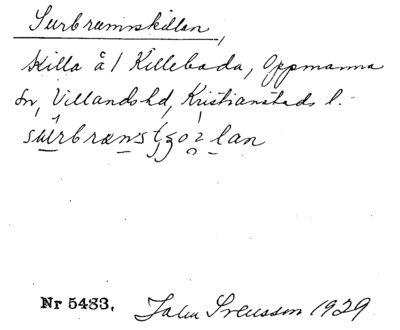 Surbrunnskillan,
Killa å / Killebada, Oppmanna
sn, Villands hd, Kristianstads l.
Nr 5483, John Svensson 1929